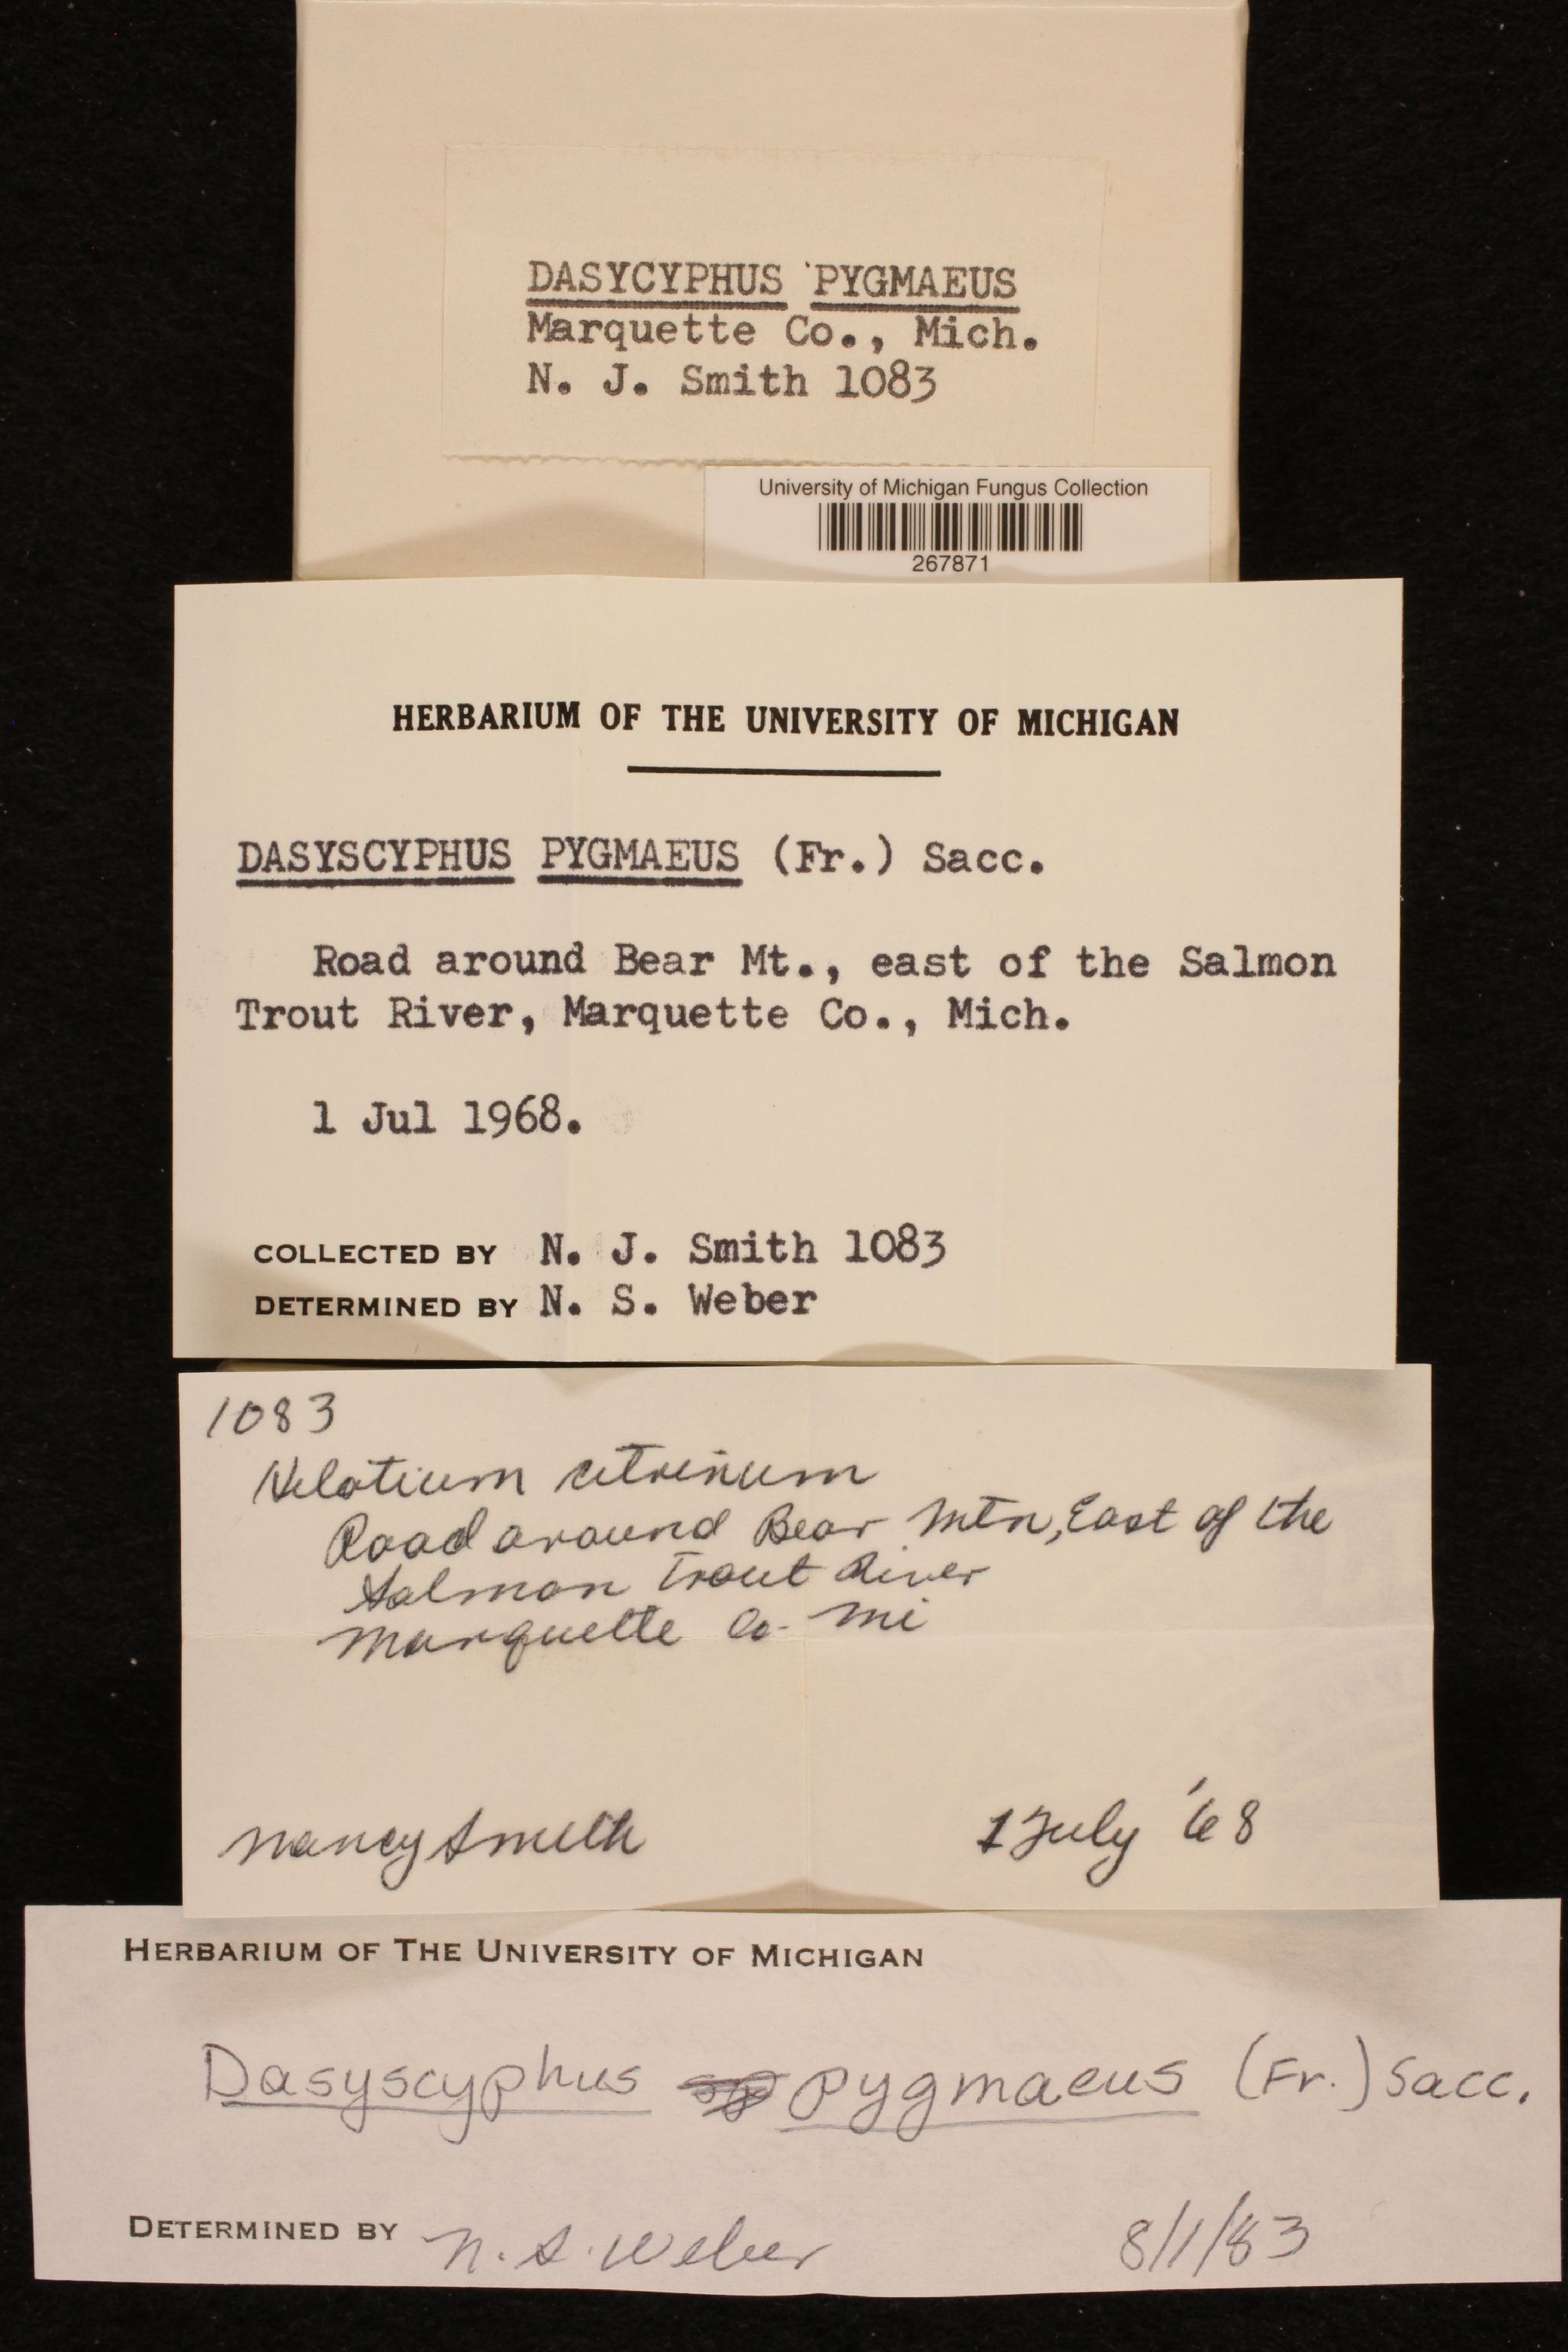 DASYCYPHUS PYGMAEUS
Marquette Co., Mich.
N. J. Smith 1083
University of Michigan Fungus Collection
267871
HERBARIUM OF THE UNIVERSITY OF MICHIGAN
DASYSCYPHUS PYGMAEUS (Fr.) Sacc.
Road around Bear Mt., east of the Salmon
Trout River, Marquette Co., Mich.
1 Jul 1968.
COLLECTED BY N. J. Smith 1083
DETERMINED BY N. S. Weber
1083
Helotium citrinum
Road around Bear Mtn, East of the
Salmon Trout River
Marquette Co. Mi
Nancy Smith 1 July '68
HERBARIUM OF THE UNIVERSITY OF MICHIGAN
Dasyscyphus pygmaeus (Fr.) Sacc.
DETERMINED BY N. S. Weber 8/1/83